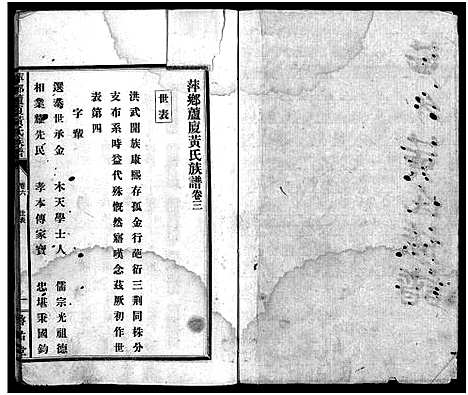 萍鄉蘆廈黃氏族譜卷三
世表
洪武開族康熙存孤金行葩佰三荆同株分
支布系時益代殊慨然寤嘆念茲厥初作世
表第四
字輩
選舉世承金 木天學士人 儒宗光祖德
相業耀先民 孝本傳家寶 忠堪秉國鈞
萍鄉蘆廈黃氏族譜 卷六 世表 一